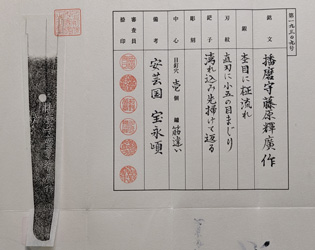 第一九三〇九号
銘文
播磨守藤原輝廣作
鍛
杢目に柾流れ
刃紋
直刃に小五の目まじり
鋩子
湾れ込み先掃けて返る
彫刻
中心
目釘穴 壱個 鑢 筋違い
備考
安芸国 宝永頃
審査員